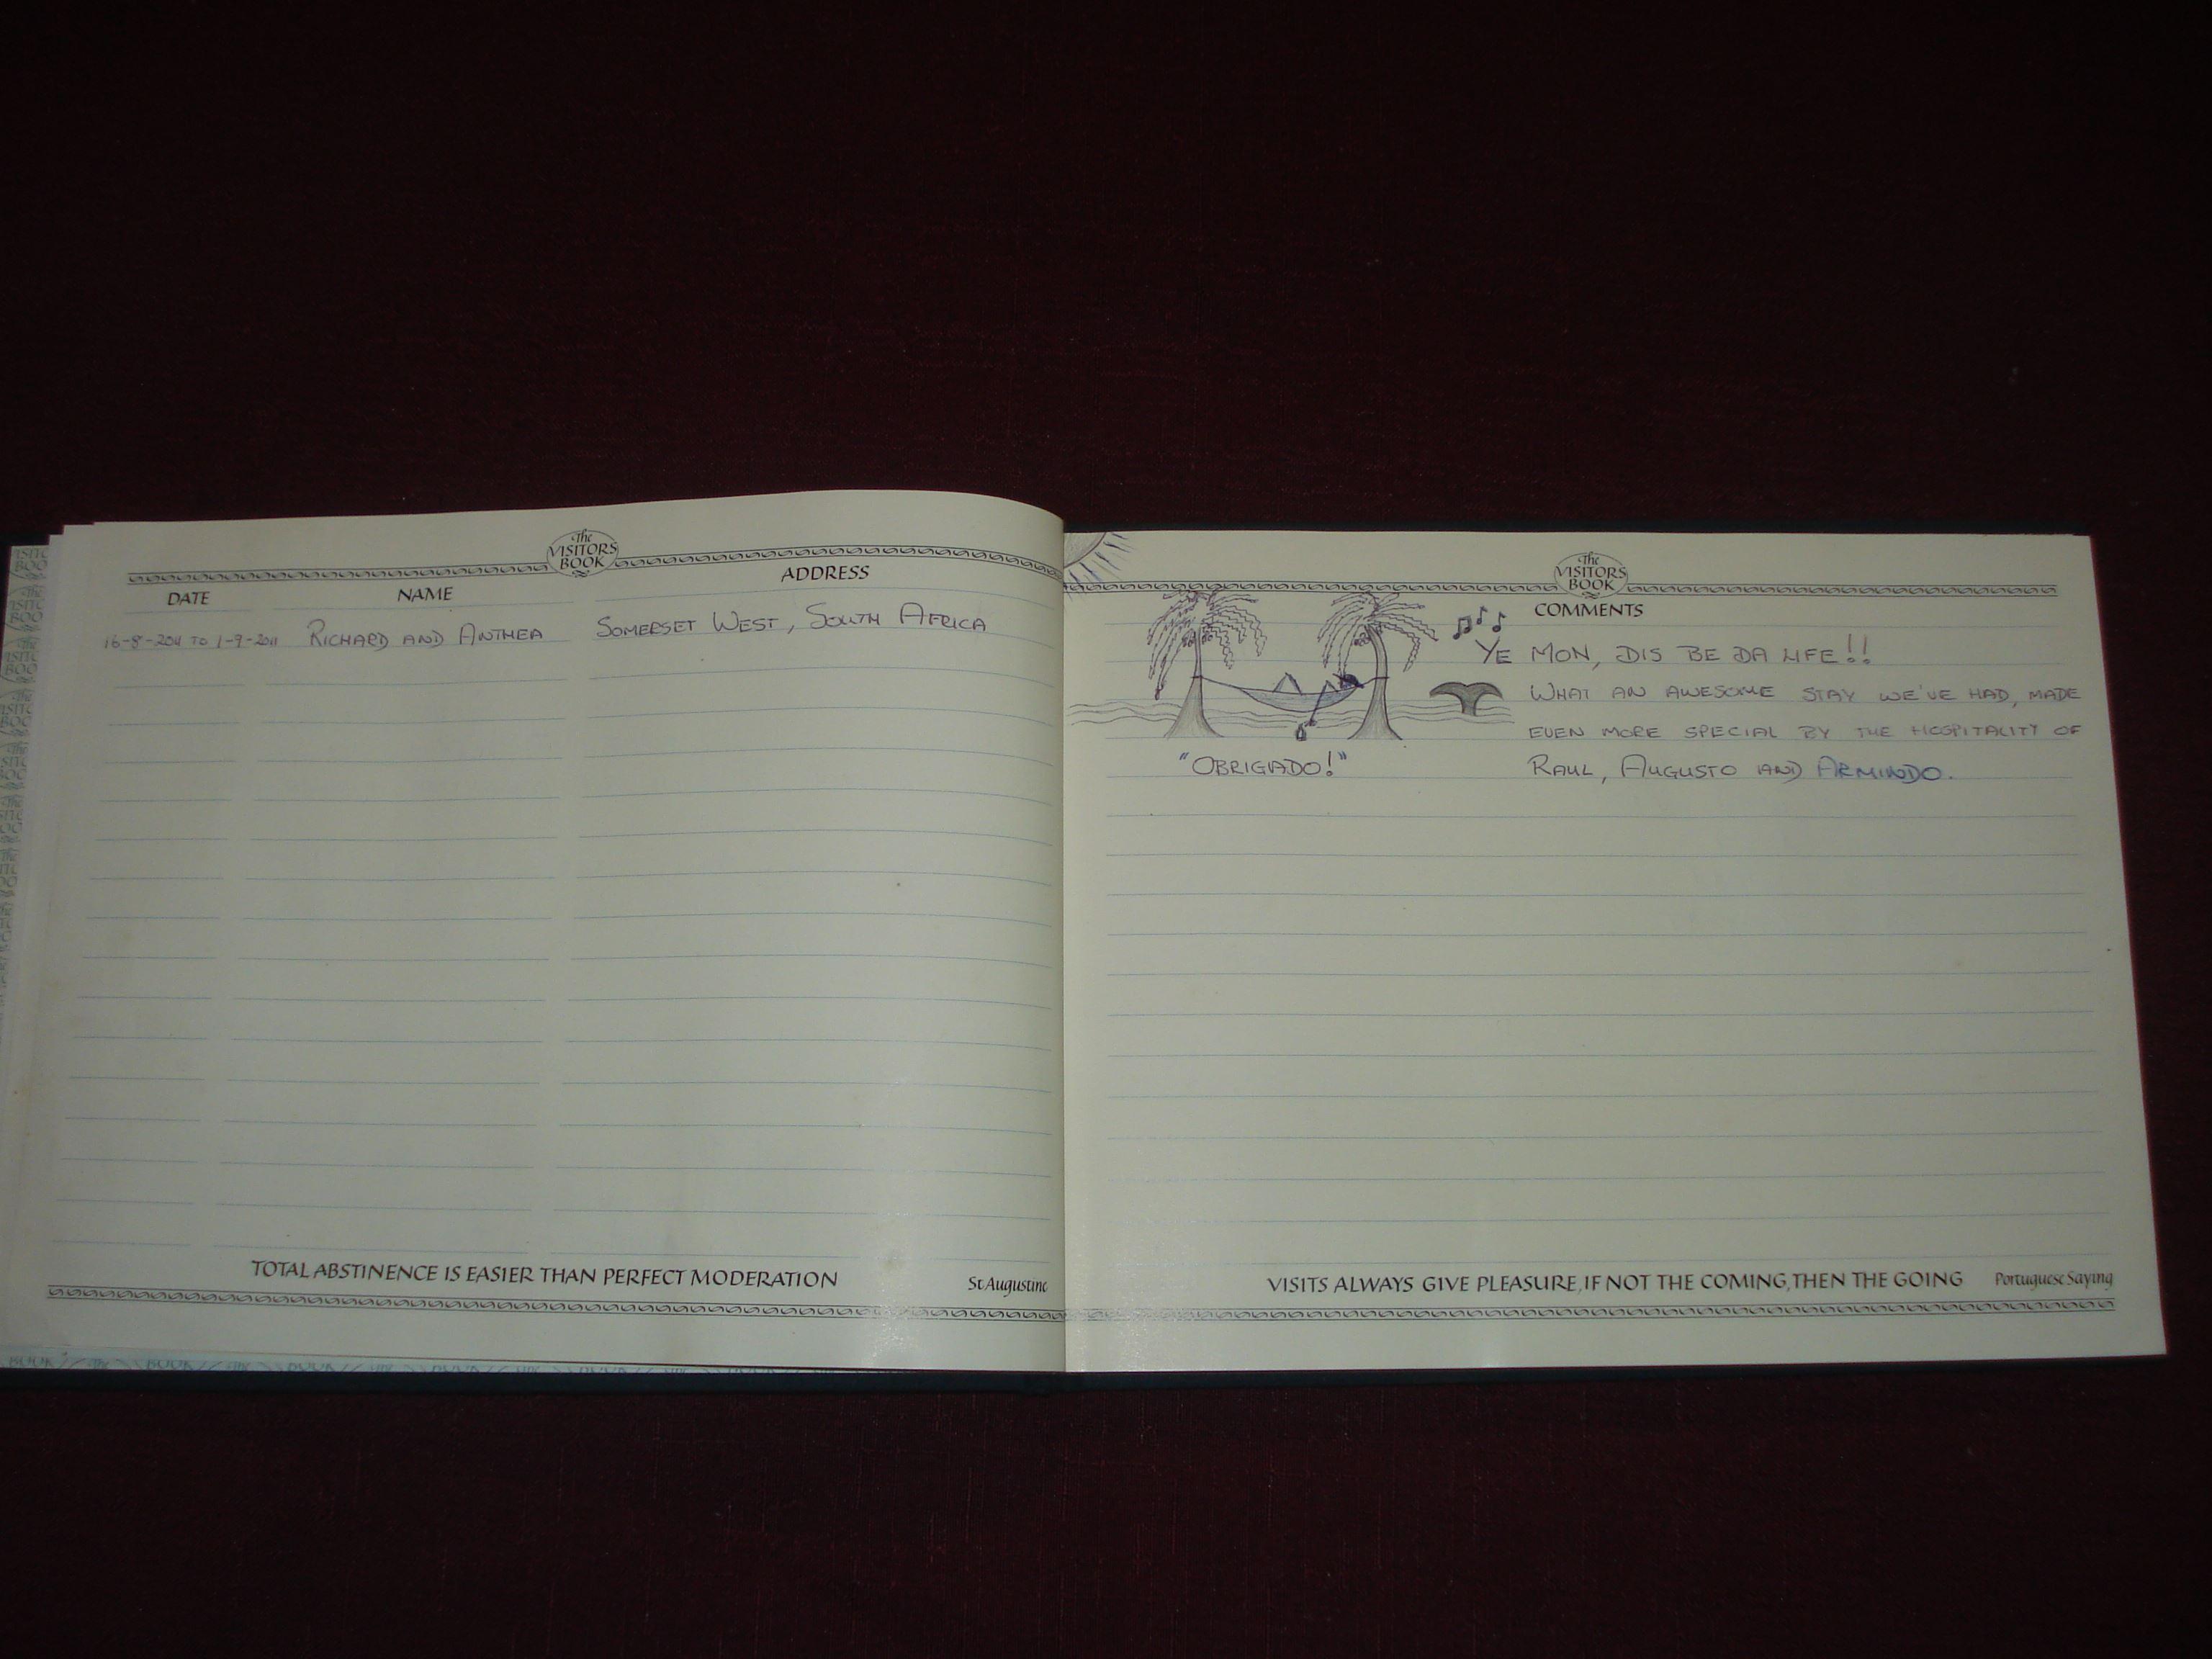 The
VISITORS
BOOK
DATE NAME ADDRESS
16-8-2011 TO 1-9-2011 RICHARD AND ANTHEA SOMERSET WEST, SOUTH AFRICA
TOTAL ABSTINENCE IS EASIER THAN PERFECT MODERATION St Augustine
The
VISITORS
BOOK
COMMENTS
YE MON, DIS BE DA LIFE!!
WHAT AN AWESOME STAY WE'VE HAD, MADE
EVEN MORE SPECIAL BY THE HOSPITALITY OF
"OBRIGADO!" RAUL, AUGUSTO AND ARMINDO.
VISITS ALWAYS GIVE PLEASURE, IF NOT THE COMING, THEN THE GOING Portuguese Saying